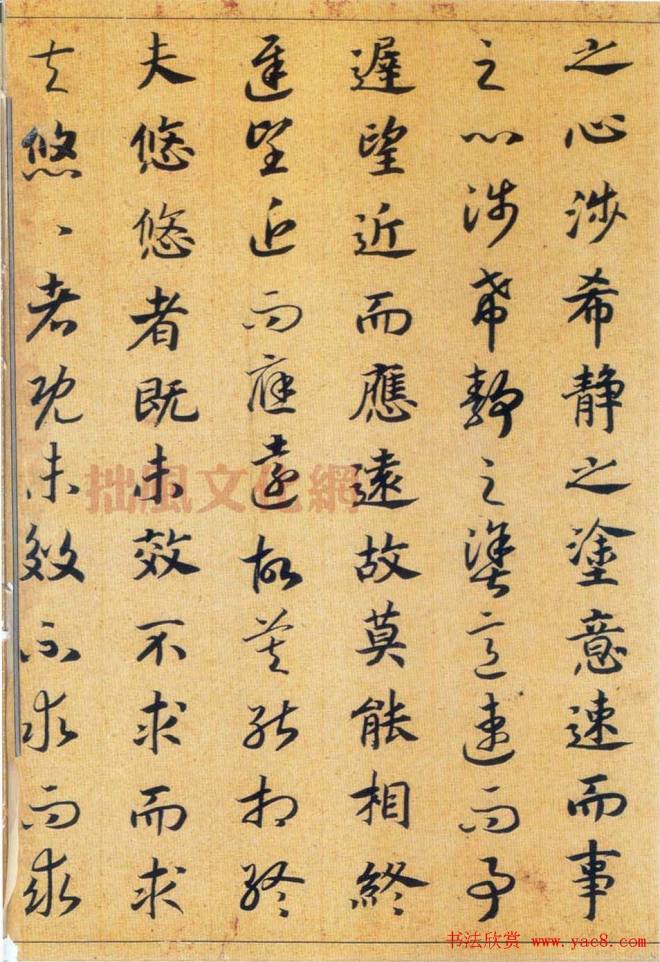 之心涉希静之塗意速而事
之心涉希静之塗意速而事
遲望近而應遠故莫能相終
遲望近而應遠故莫能相終
夫悠悠者既未效不求而求
夫悠、者既未效不求而求
拙風文化網
书法欣赏 www.yac8.com